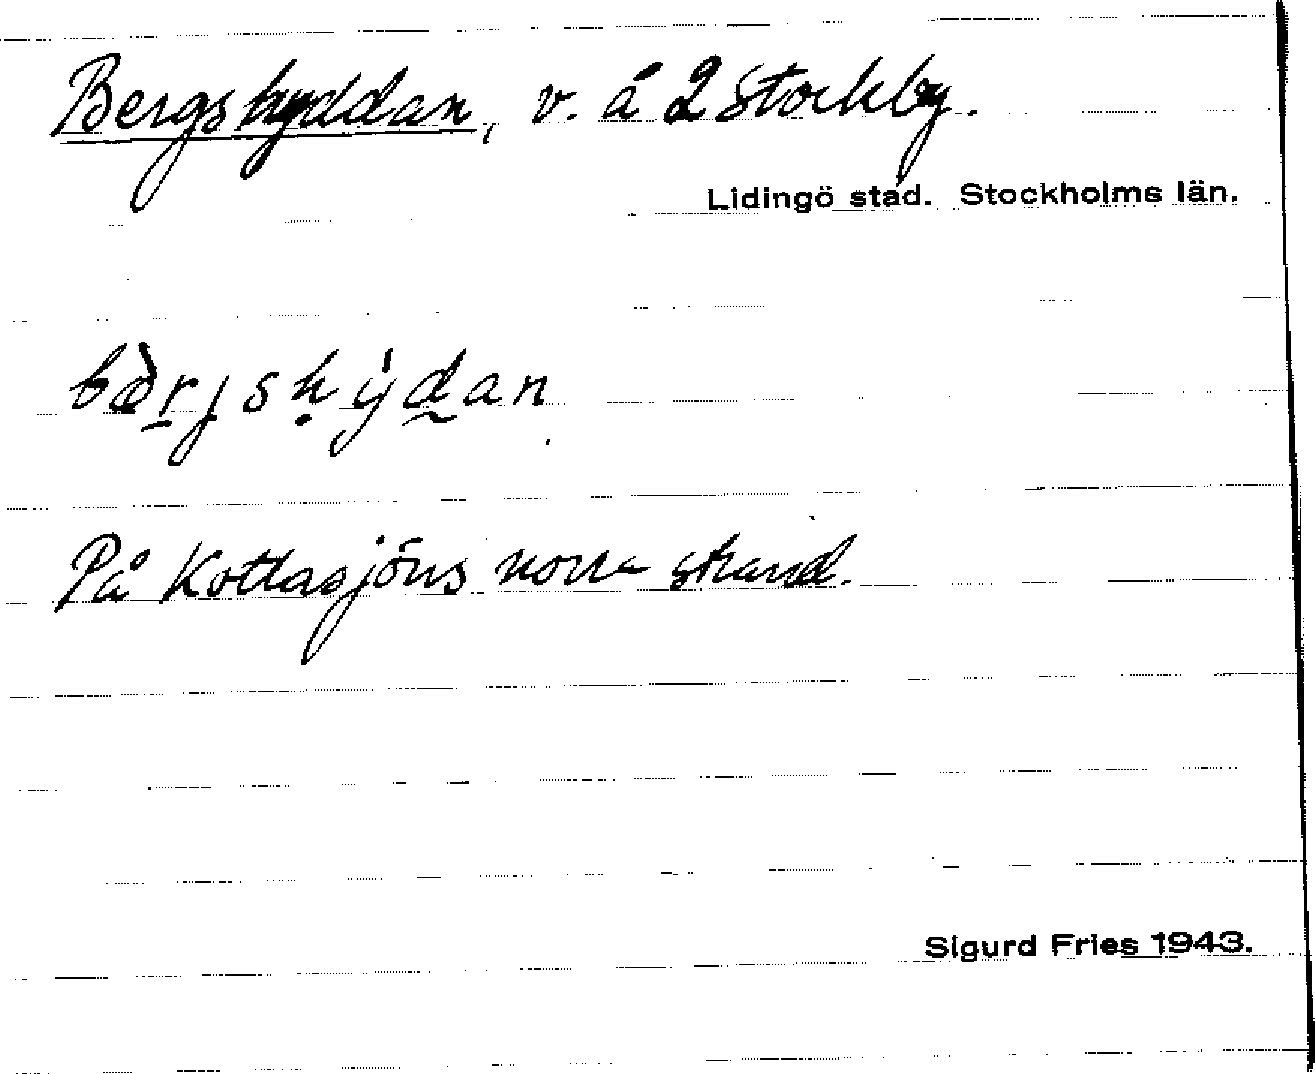 Bergshyddan, v. å 2 Stockby.
Lidingö stad. Stockholms län.
bæ̀rjshy̍dan
På Kottlasjöns norra strand.
Sigurd Fries 1943.